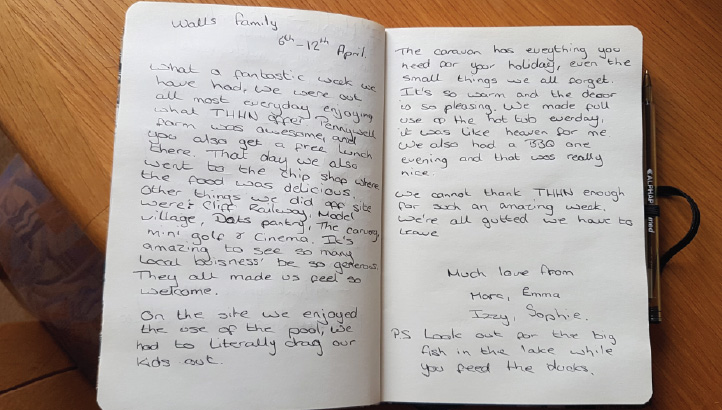 Walls family
6th - 12th April.
What a fantastic week we
have had, we were out
all most everyday enjoying
what THHN offer Pennywell
farm was awesome, and
you also get a free lunch
there. That day we also
went to the chip shop where
the food was delicious.
Other things we did off site
were: Cliff Railway, Model
village, Dots pantry, The carvery,
mini golf & Cinema. It's
amazing to see so many
Local beisness' be so generous.
They all made us feel so
welcome.
On the site we enjoyed
the use of the pool, we
had to literally drag our
kids out.
The caravan has eveything you
need for your holiday, even the
small things we all forget.
It's so warm and the decor
is so pleasing. We made full
use of the hot tub everday,
it was like heaven for me
We also had a BBQ one
evening and that was really
nice.
We cannot thank THHN enough
for such an amazing week.
We're all gutted we have to
leave
Much love from
Marc, Emma
Izzy, Sophie.
PS Look out for the big
fish in the lake while
you feed the ducks.
ALPHA